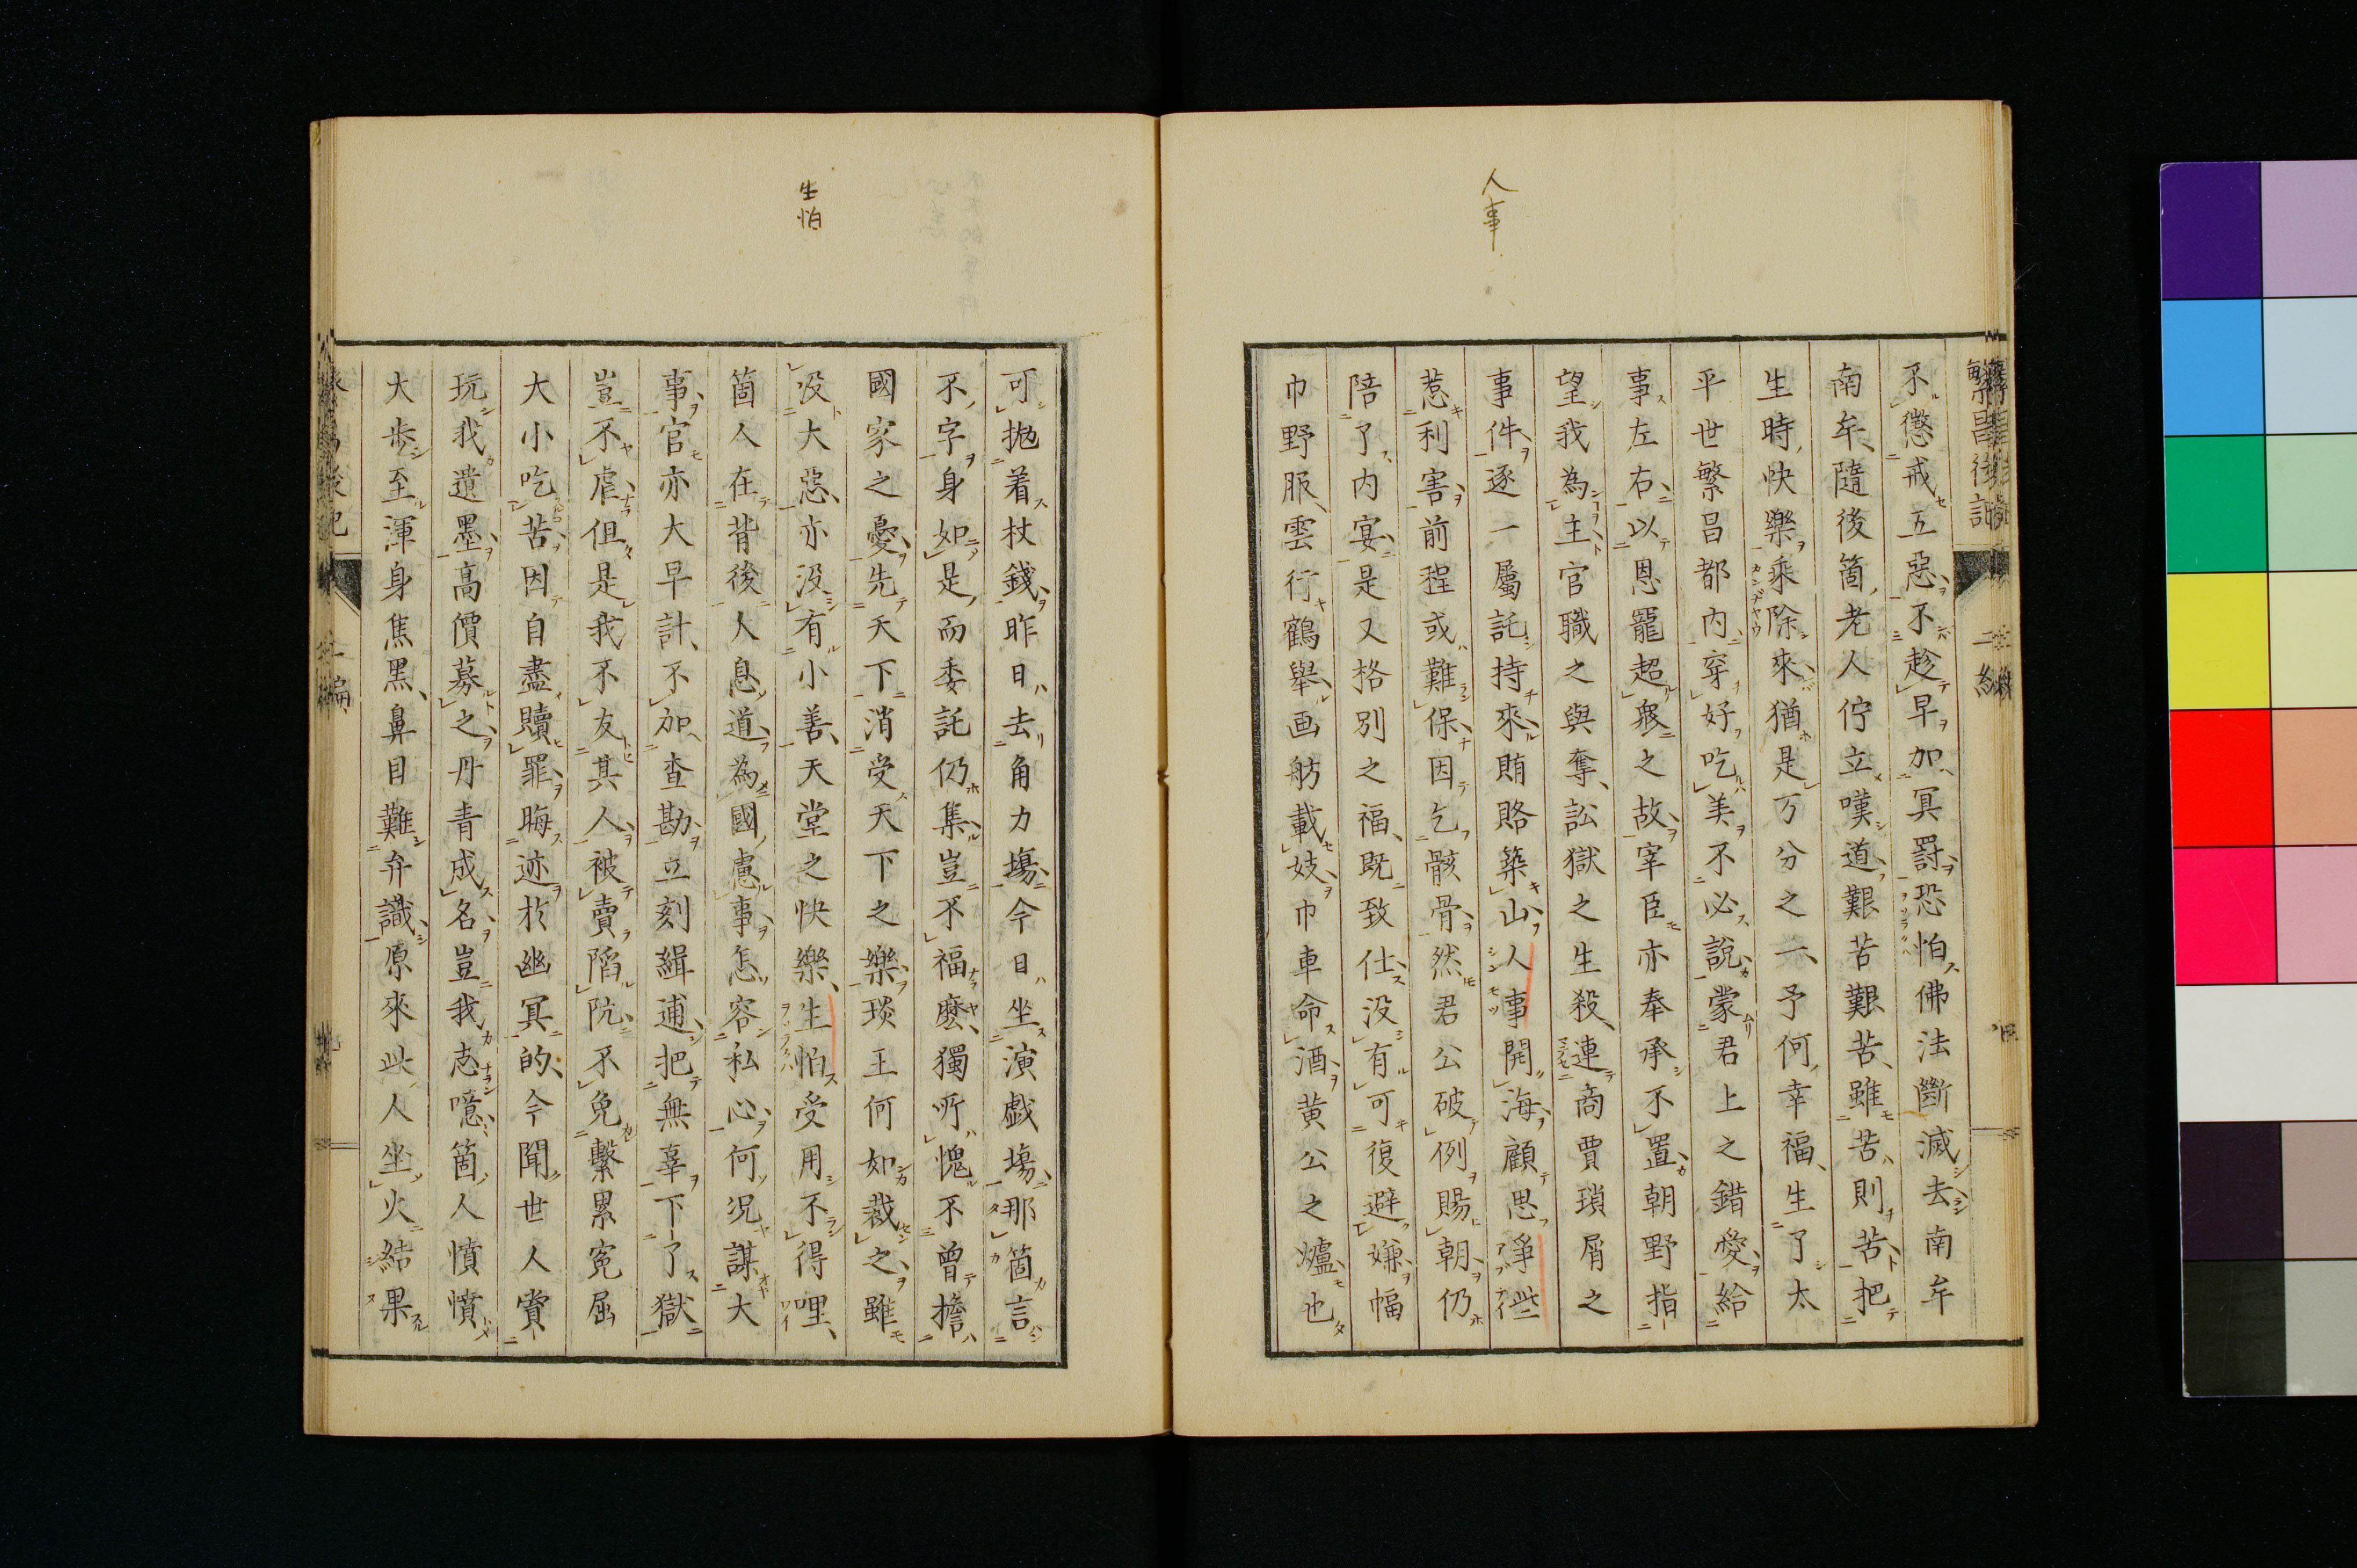 人事
不懲戒五惡不趁早加冥罸恐怕佛法斷滅去南牟
南牟隨後箇老人佇立嘆道艱苦艱苦雖苦則苦把
生時快樂乘除來猶是万分之一予何幸福生了太
平世繁昌都内穿好吃美不必說蒙君上之錯愛給
事左右以恩寵超衆之故宰臣亦奉承不置朝野指
望我為主官職之與奪訟獄之生殺連商賈瑣屑之
事件逐一屬託持來賄賂築山人事開海顧思爭些
惹利害前程或難保因乞骸骨然君公破例賜朝仍
陪了内宴是又格別之福既致仕没有可復避嫌幅
巾野服雲行鶴舉画舫載妓巾車命酒黄公之爐也
生怕
可抛着杖錢昨日去角力場今日坐演戯場那箇言
不字身如是而委託仍集豈不福麼獨所愧不曾擔
國家之憂先天下消受天下之樂琰王何如裁之雖
没大惡亦没有小善天堂之快樂生怕受用不得哩
箇人在背後人息道為國慮事怎容私心何況謀大
事官亦大早計不加查勘立刻緝逋把無辜下了獄
豈不虐但是我不友其人被賣陷阬不免繫累寃屈
大小吃苦因自盡贖罪晦迹於幽冥的今聞世人賞
玩我遺墨高價募之丹青成名豈我志噫箇人憤憤
大歩至渾身焦黒鼻目難弁識原來此人坐火結果